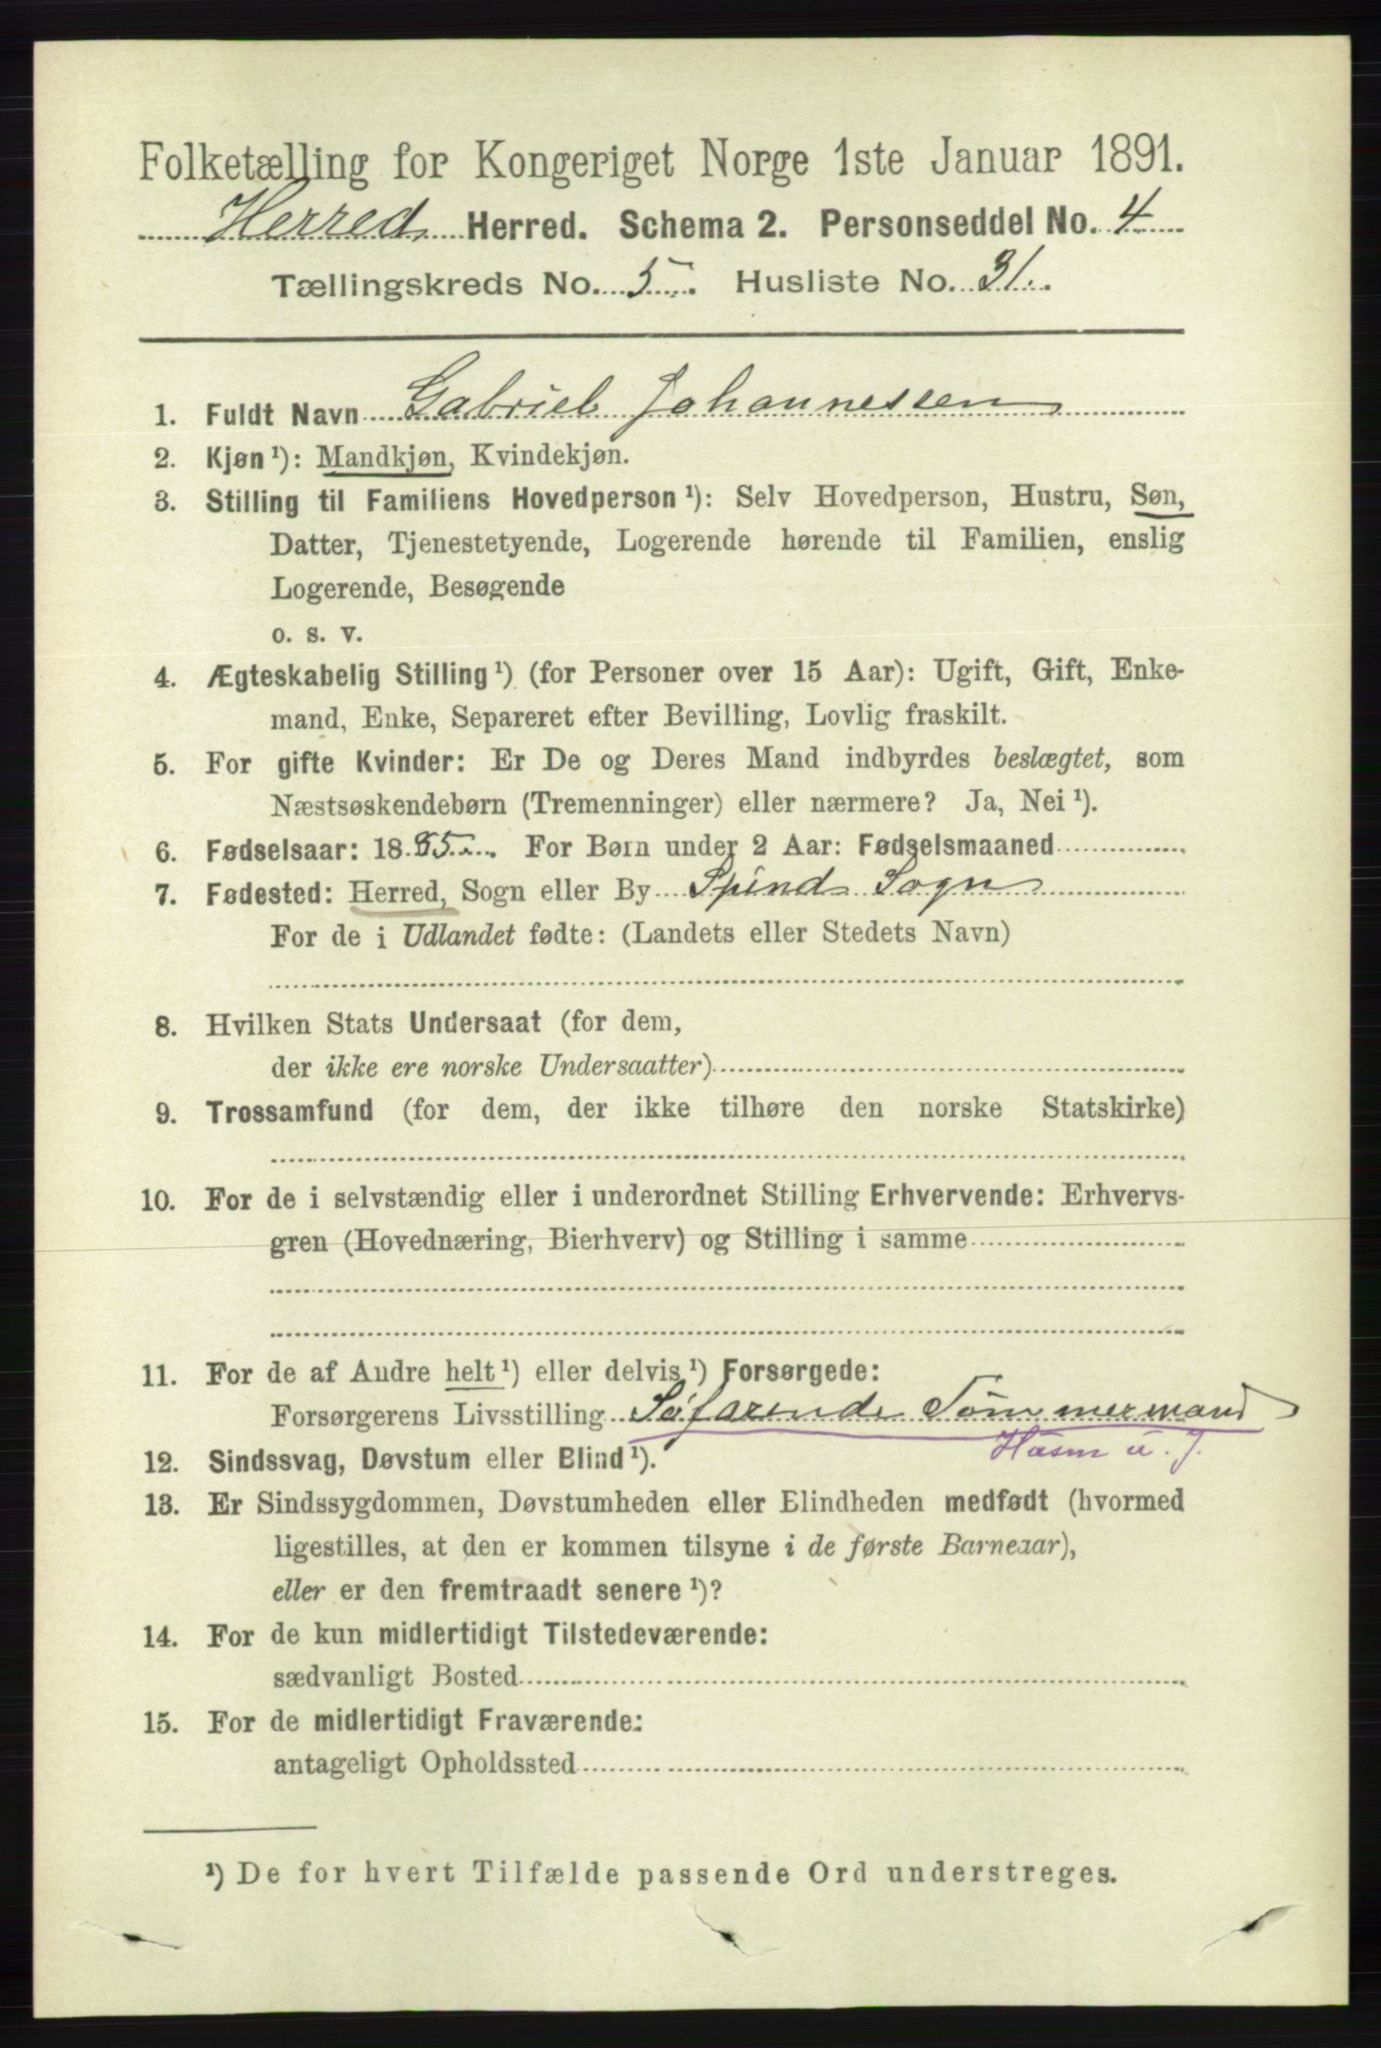 Folketælling for Kongeriget Norge 1ste Januar 1891.
Herred Herred. Schema 2. Personseddel No. 4
Tællingskreds No. 5. Husliste No. 31.
1. Fuldt Navn Gabriel Johannessen
2. Kjøn ¹): Mandkjøn, Kvindekjøn.
3. Stilling til Familiens Hovedperson ¹): Selv Hovedperson, Hustru, Søn,
Datter, Tjenestetyende, Logerende hørende til Familien, enslig
Logerende, Besøgende
o. s. v.
4. Ægteskabelig Stilling ¹) (for Personer over 15 Aar): Ugift, Gift, Enke-
mand, Enke, Separeret efter Bevilling, Lovlig fraskilt.
5. For gifte Kvinder: Er De og Deres Mand indbyrdes beslægtet, som
Næstsøskendebørn (Tremenninger) eller nærmere? Ja, Nei ¹).
6. Fødselsaar: 1885. For Børn under 2 Aar: Fødselsmaaned
7. Fødested: Herred, Sogn eller By Spind Sogn
For de i Udlandet fødte: (Landets eller Stedets Navn)
8. Hvilken Stats Undersaat (for dem,
der ikke ere norske Undersaatter)
9. Trossamfund (for dem, der ikke tilhøre den norske Statskirke)
10. For de i selvstændig eller i underordnet Stilling Erhvervende: Erhvervs-
gren (Hovednæring, Bierhverv) og Stilling i samme
11. For de af Andre helt ¹) eller delvis ¹) Forsørgede:
Forsørgerens Livsstilling Søfarende Tømmermand
Husm u. J.
12. Sindssvag, Døvstum eller Blind ¹).
13. Er Sindssygdommen, Døvstumheden eller Blindheden medfødt (hvormed
ligestilles, at den er kommen tilsyne i de første Barneaar),
eller er den fremtraadt senere ¹)?
14. For de kun midlertidigt Tilstedeværende:
sædvanligt Bosted
15. For de midlertidigt Fraværende:
antageligt Opholdssted
¹) De for hvert Tilfælde passende Ord understreges.